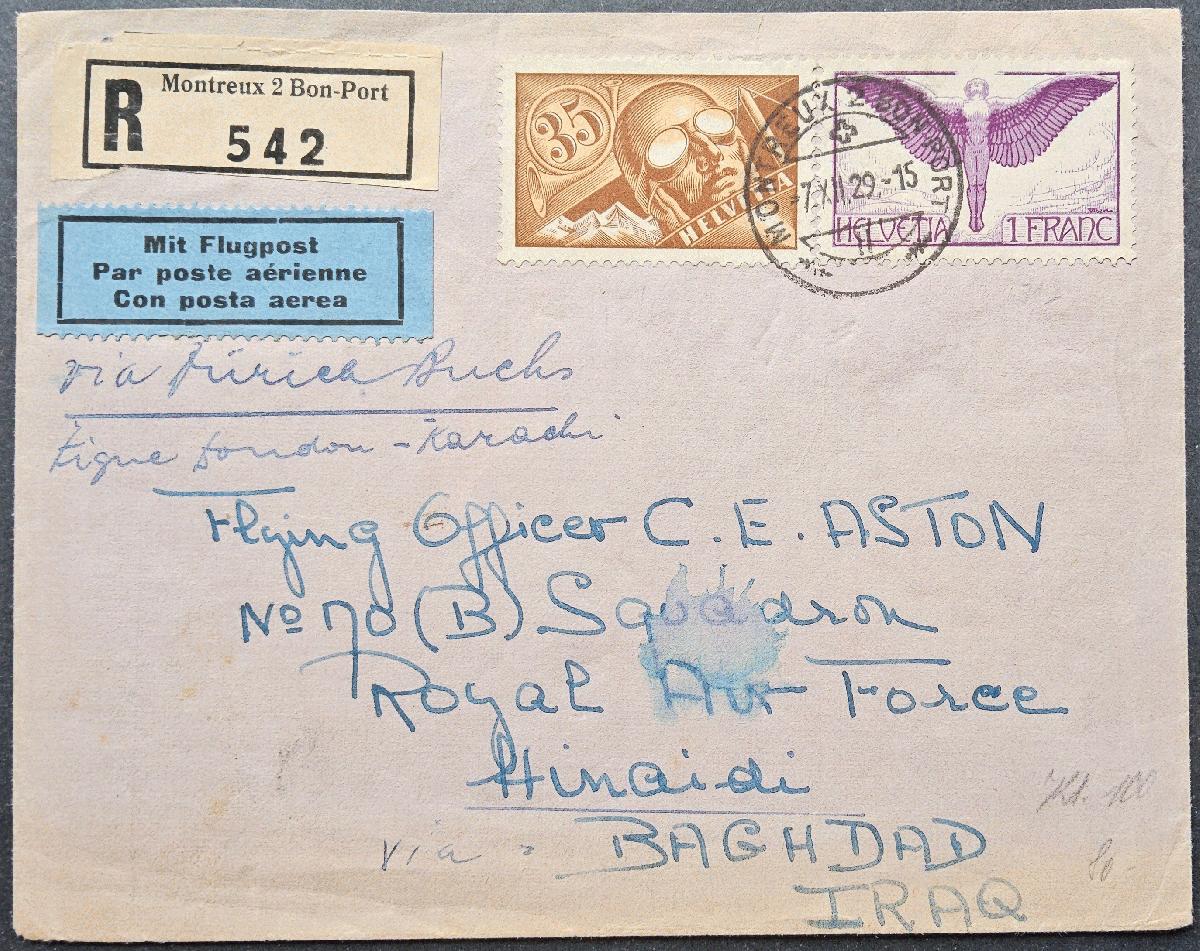 R
Montreux 2 Bon-Port
542
Mit Flugpost
Par poste aérienne
Con posta aerea
35
HELVETIA
MONTREUX 2 BON-PORT
-7.XII.29.-15
HELVETIA 1 FRANC
via Zürich Buchs
Ligne London - Karachi
Flying Officer C. E. ASTON
No 70 (B) Squadron
Royal Air Force
Hinaidi
via BAGHDAD
IRAQ
80.-